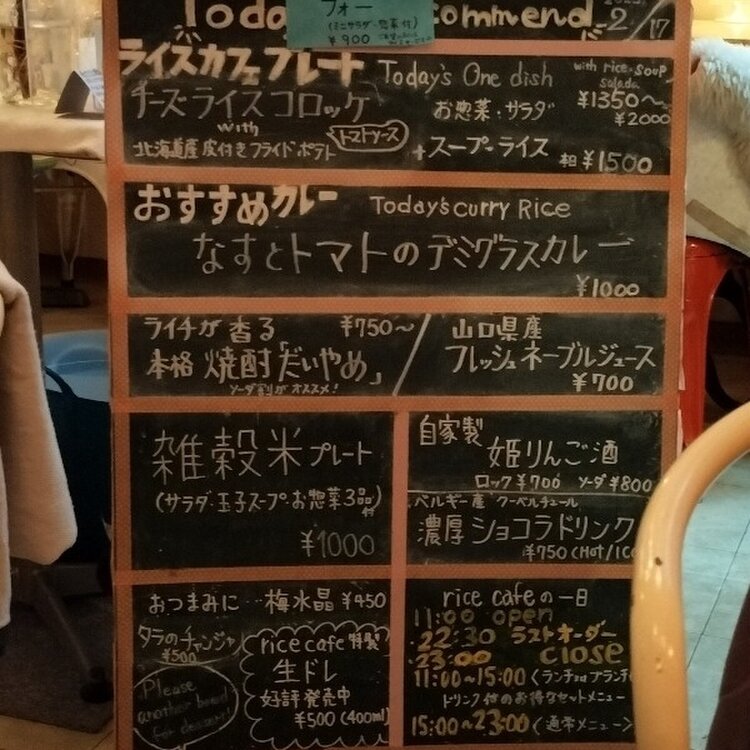 フォー
(ミニサラダ・惣菜付)
¥900
Today's Recommend 2/17
ライスカフェプレート Today's One dish with rice・soup salada
チーズライスコロッケ お惣菜・サラダ ¥1350〜
¥2000
with トマトソース
北海道産皮付きフライドポテト +スープ・ライス ¥1500
おすすめカレー Today's curry Rice
なすとトマトのデミグラスカレー
¥1000
ライチが香る ¥750〜
本格焼酎「だいやめ」
ソーダ割がオススメ!
山口県産
フレッシュネーブルジュース
¥700
雑穀米プレート
(サラダ・玉子スープ・お惣菜3品付)
¥1000
自家製
姫りんご酒
ロック¥700 ソーダ¥800
ベルギー産 クーベルチュール
濃厚ショコラドリンク
¥750(Hot/Ice
おつまみに…梅水晶 ¥450
タラのチャンジャ
¥500
Please
another board
for dessert!
rice cafe 特製
生ドレ
好評発売中
¥500(400ml)
rice cafeの一日
11:00 open
22:30 ラストオーダー
23:00 close
11:00〜15:00
ドリンク付のお得なセットメニュー
15:00〜23:00 (通常メニュー)